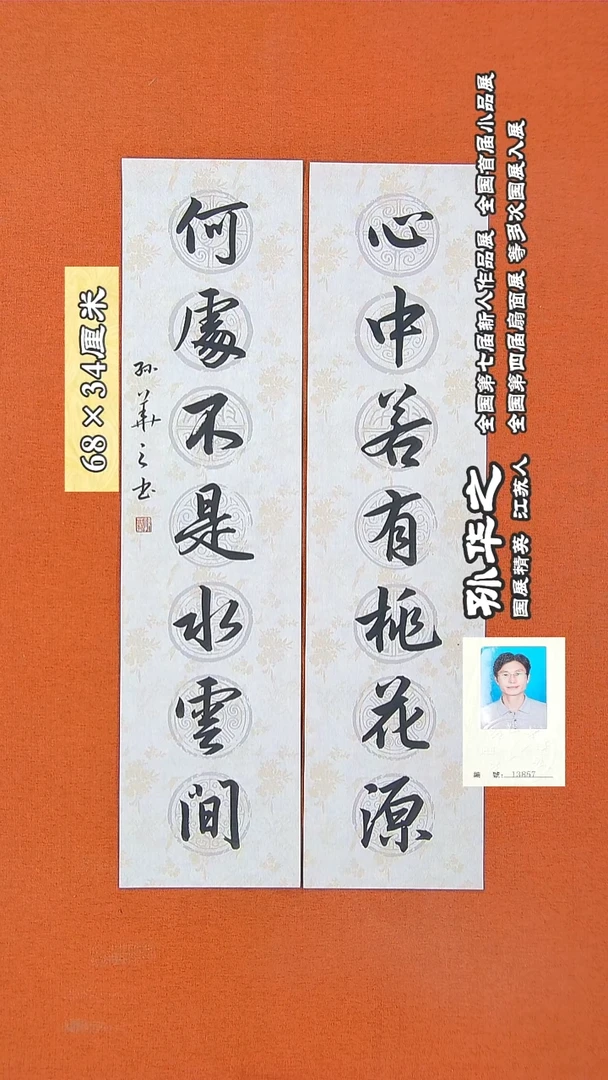 心中若有桃花源
何處不是水雲間
孙華之书
68×34厘米
孙华之
国展精英 江苏人
全国第七届新人作品展 全国首届小品展
全国第四届扇面展 等多次国展入展
13867